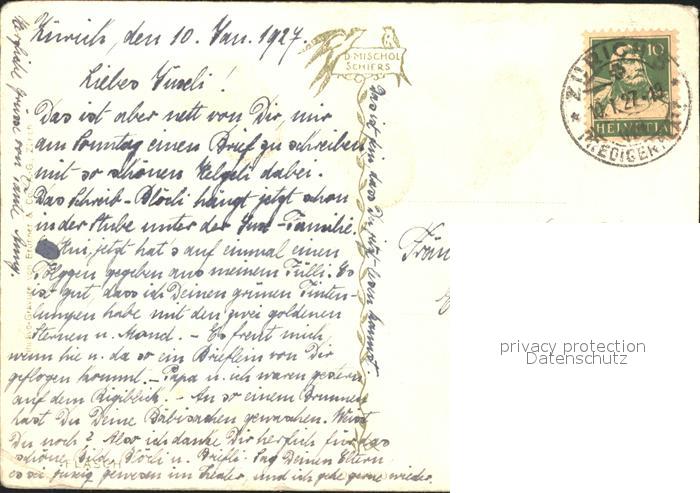 Zürich, den 10. Jan. 1927.
Liebes Vuseli!
Das ist aber nett von Dir, mir
am Sonntag einen Brief zu schreiben
mit so schönen Helgeli dabei.
Das Schreib-Blöcli hängt jetzt schon
in der Stube unter der Familie.
jetzt hat's auf einmal einen
Tolggen gegeben aus meinem Fülli. Es
ist gut, dass ich Deinen grünen Tinten-
lumpen habe mit den zwei goldenen
Sternen u. Mond. – Es freut mich
wenn hie u. da so ein Brieflein von Dir
geflogen kommt. – Papa u. ich waren gestern
auf dem Rigiblick. – An so einem Brunnen
hast Du Deine Bäbisachen gewaschen. Weisst
Du noch? Also ich danke Dir herzlich für das
schöne Bild, Blöcli u. Briefli. Sag Deinen Eltern
es sei gewesen im Theater, und ich gehe gerne wieder.
Herzliche Grüsse von Tante
Das ist fein dass Du jetzt lesen kannst.
D. MISCHOL
SCHIERS
FLÄSCH
10
HELVETIA
ZÜRICH
1.27
PREDIGERPLATZ
Fräu
privacy protection
Datenschutz